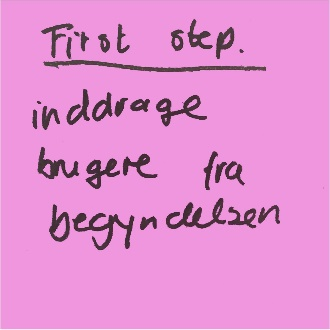 First step.
inddrage
brugere fra
begyndelsen